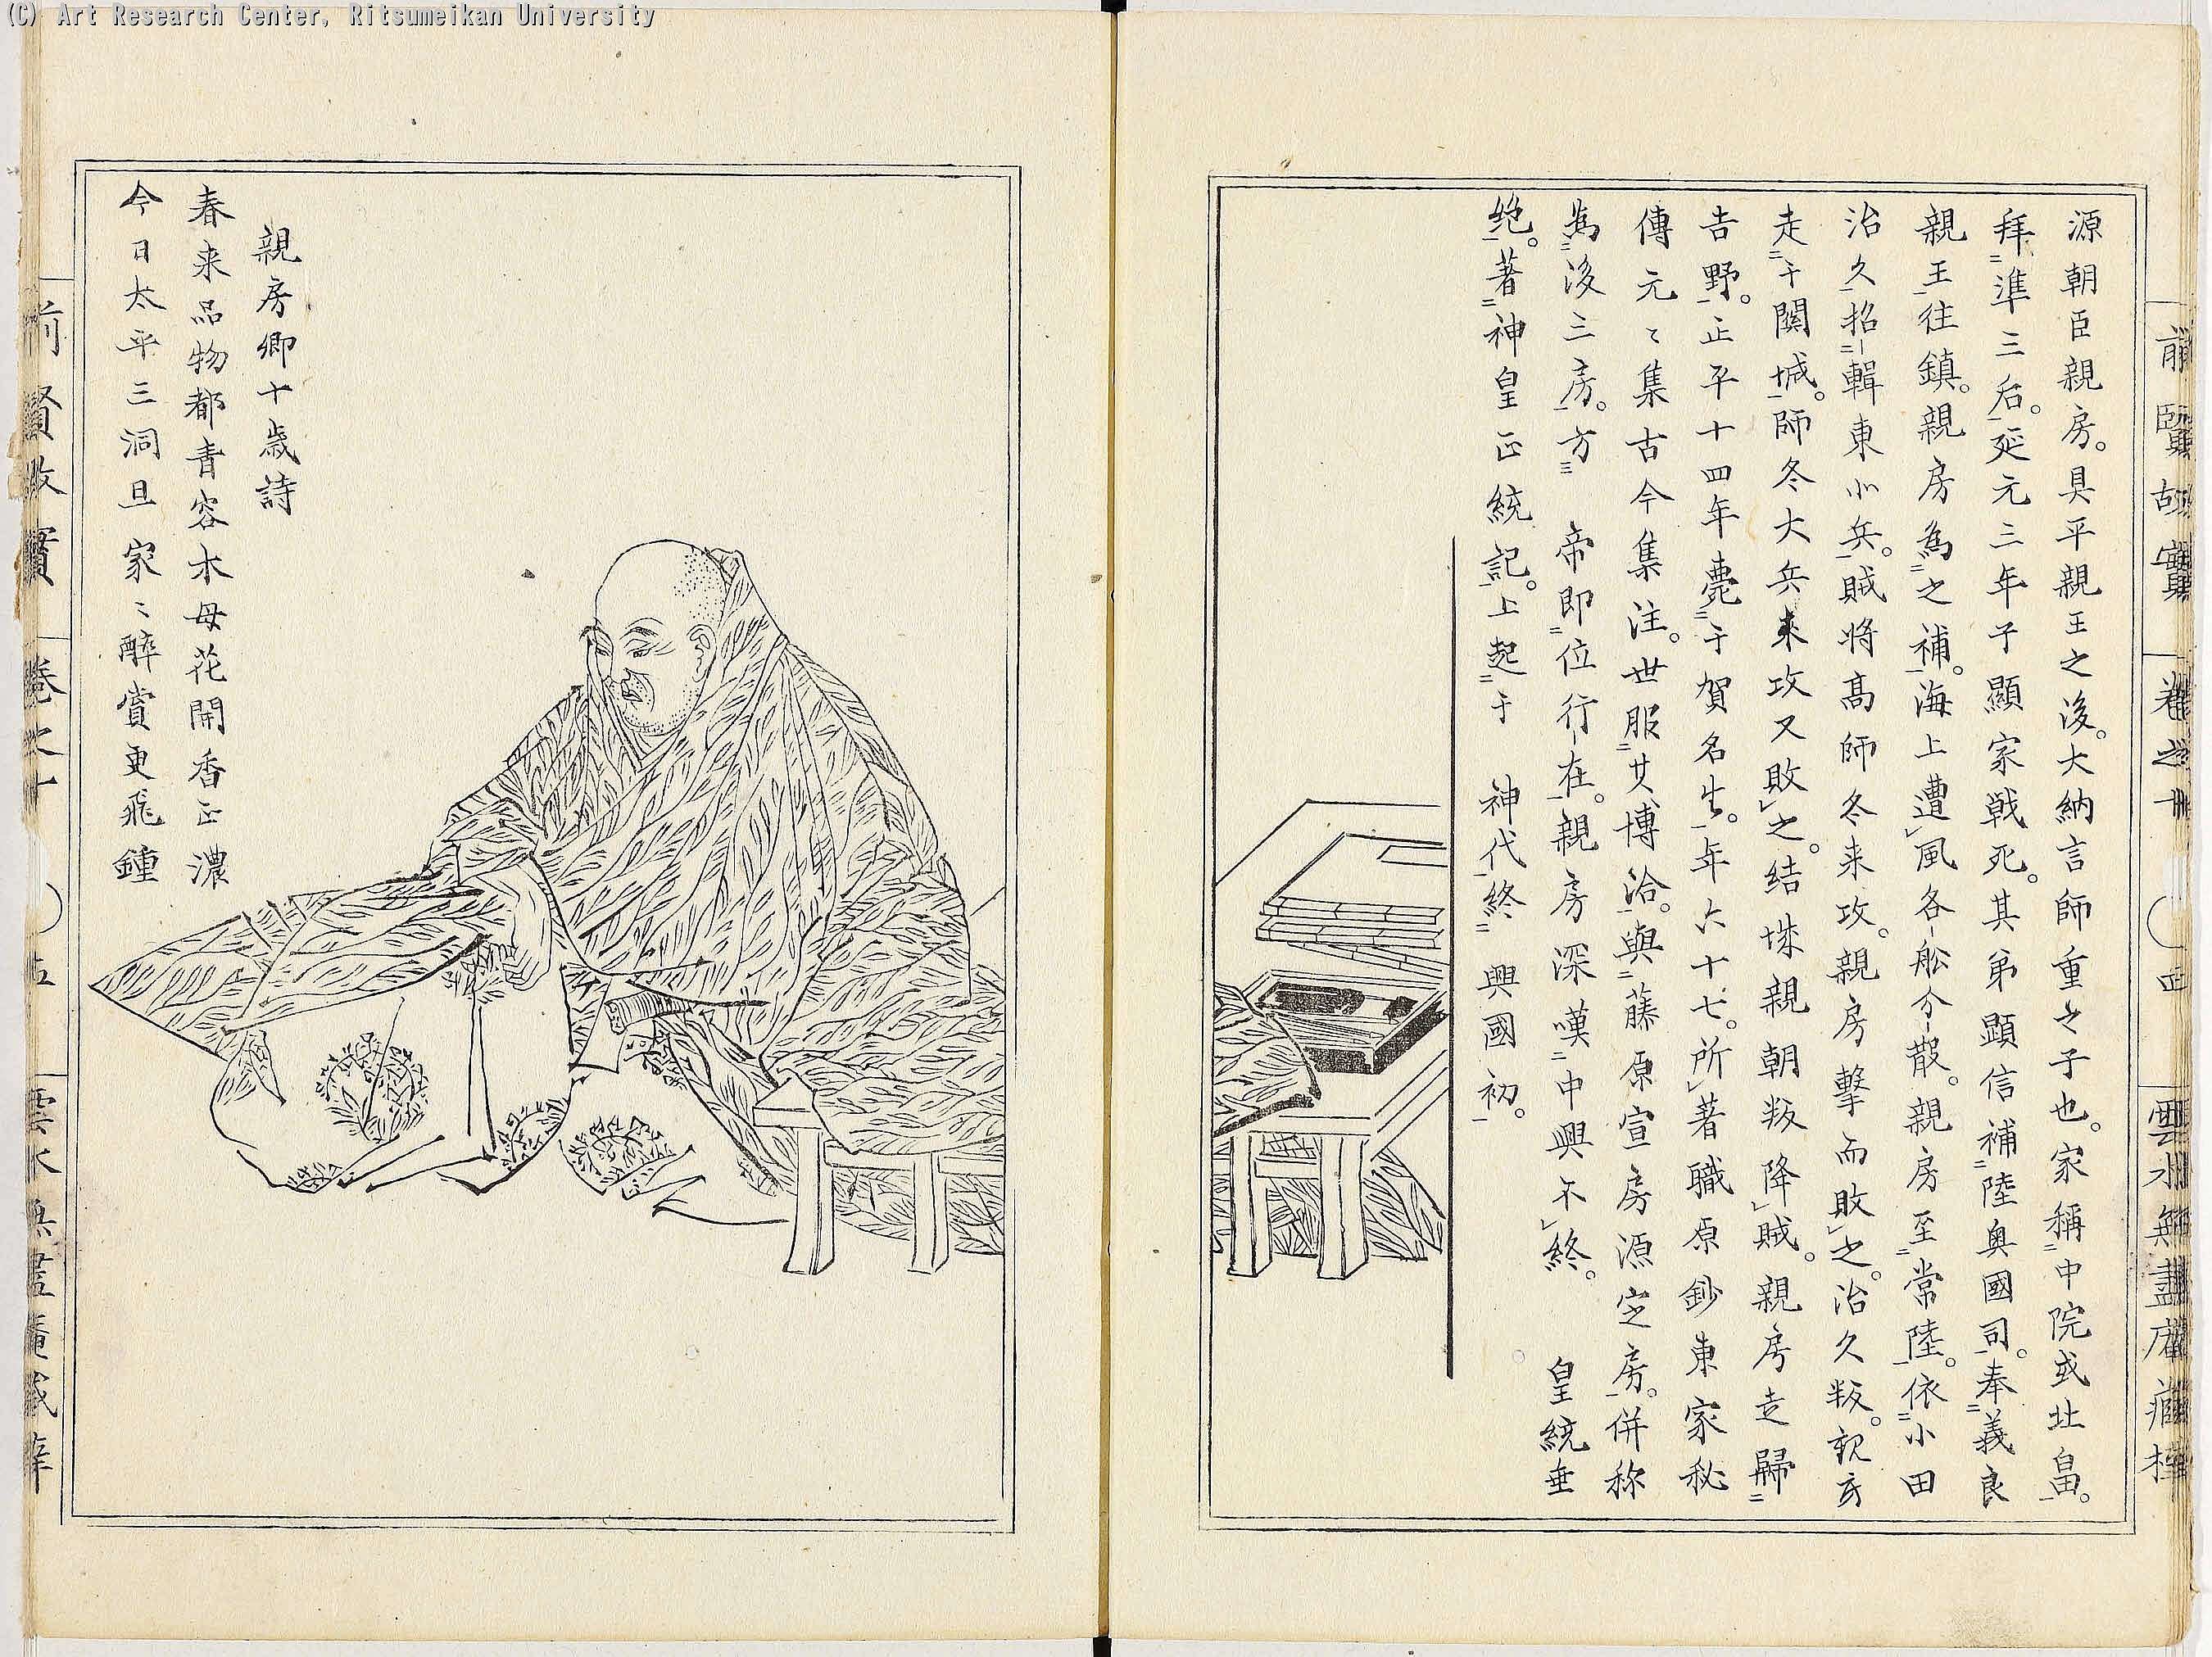 (C) Art Research Center, Ritsumeikan University
前賢故實 卷之十 雲水無盡庵藏梓
源朝臣親房。具平親王之後。大納言師重之子也。家稱中院或北畠。
拜準三后。延元三年子顯家戦死。其弟顕信補陸奥國司。奉義良
親王往鎮。親房為之補。海上遭風各舩分散。親房至常陸。依小田
治久招輯東北兵。賊将髙師冬来攻。親房擊而敗之。治久叛。親房
走于関城。師冬大兵来攻又敗之。结城親朝叛降賊。親房走歸
吉野。正平十四年薨于賀名生。年六十七。所著職原鈔東家秘
傳元々集古今集注。世服其博洽。與藤原宣房源定房。併称
為後三房。方 帝即位行在。親房深嘆中興不終。 皇統垂
絶。著神皇正統記。上起于 神代終 興國初。
親房卿十歳詩
春来品物都青容木母花開香正濃
今日太平三洞旦家々醉賞更飛鍾
前賢故實 卷之十 五 雲水無盡庵藏梓